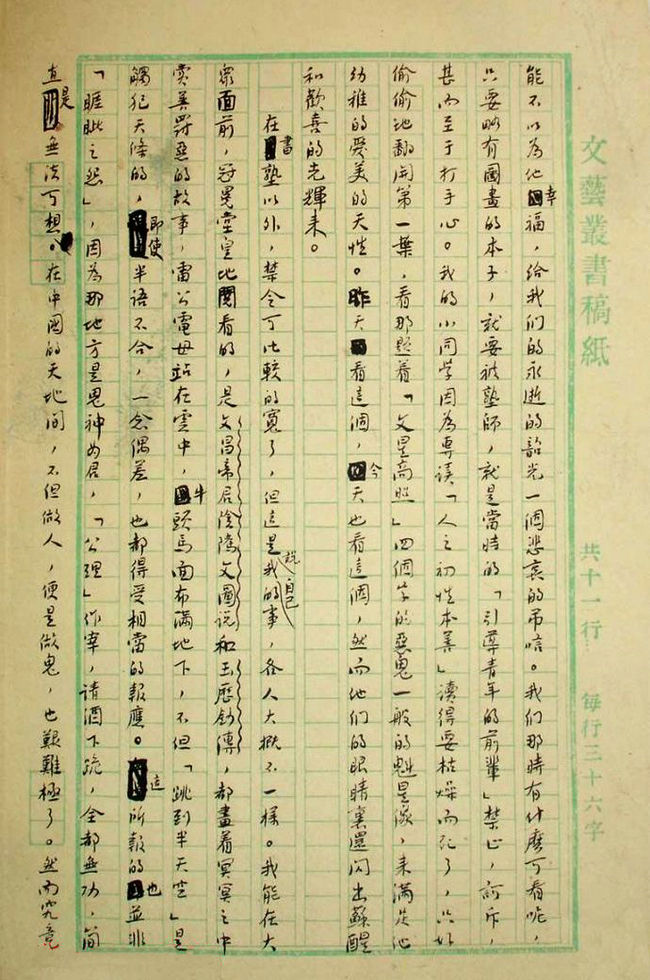 文藝叢書稿紙 共十一行 每行三十六字
能不以為他幸福，給我们的永逝的韶光一個悲哀的弔唁。我们那時有什麼可看呢，
只要略有圖畫的本子，就要被塾師，就是當時的「引導青年的前輩」禁止，訶斥，
甚而至于打手心。我的小同学因為專讀「人之初性本善」讀得要枯燥而死了，只好
偷偷地翻開第一葉，看那題着「文星高照」四個字的惡鬼一般的魁星像，来滿足他
幼稚的愛美的天性。昨天看這個，今天也看這個，然而他们的眼睛裏還閃出蘇醒
和歡喜的光輝来。
在書塾以外，禁令可比較的寬了，但這是說我自己的事，各人大概不一樣。我能在大
衆面前，冠冕堂皇地閱看的，是文昌帝君陰隲文圖說和玉歷鈔傳，都畫着冥冥之中
賞善罰惡的故事，雷公電母站在雲中，牛頭馬面布滿地下，不但「跳到半天空」是
觸犯天條的，即使半語不合，一念偶差，也都得受相當的報應。這所報的也並非
「睚眦之怨」，因為那地方是鬼神為君，「公理」作宰，請酒下跪，全都無功，簡
直是無法可想。在中國的天地間，不但做人，便是做鬼，也艱難極了。然而究竟